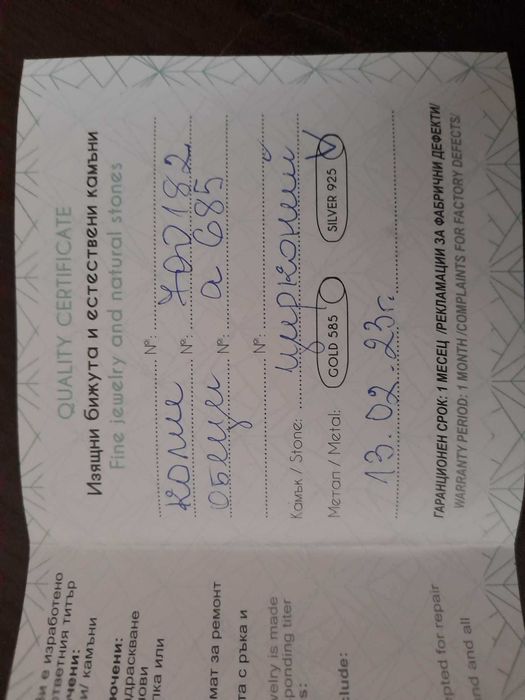 QUALITY CERTIFICATE
Изящни бижута и естествени камъни
Fine jewelry and natural stones
№:
колие №:
обеци №: а 685
№:
Камък / Stone: цирконий
Метал / Metal: GOLD 585 SILVER 925 V
13.02.23г.
ГАРАНЦИОНЕН СРОК: 1 МЕСЕЦ /РЕКЛАМАЦИИ ЗА ФАБРИЧНИ ДЕФЕКТИ/
WARRANTY PERIOD: 1 MONTH /COMPLAINTS FOR FACTORY DEFECTS/
и е изработено
ответния титър
чени:
и/ камъни
ючени:
удраскване
нови
лка или
мат за ремонт
та с ръка и
welry is made
ponding titer
s:
lude:
pted for repair
nd and all